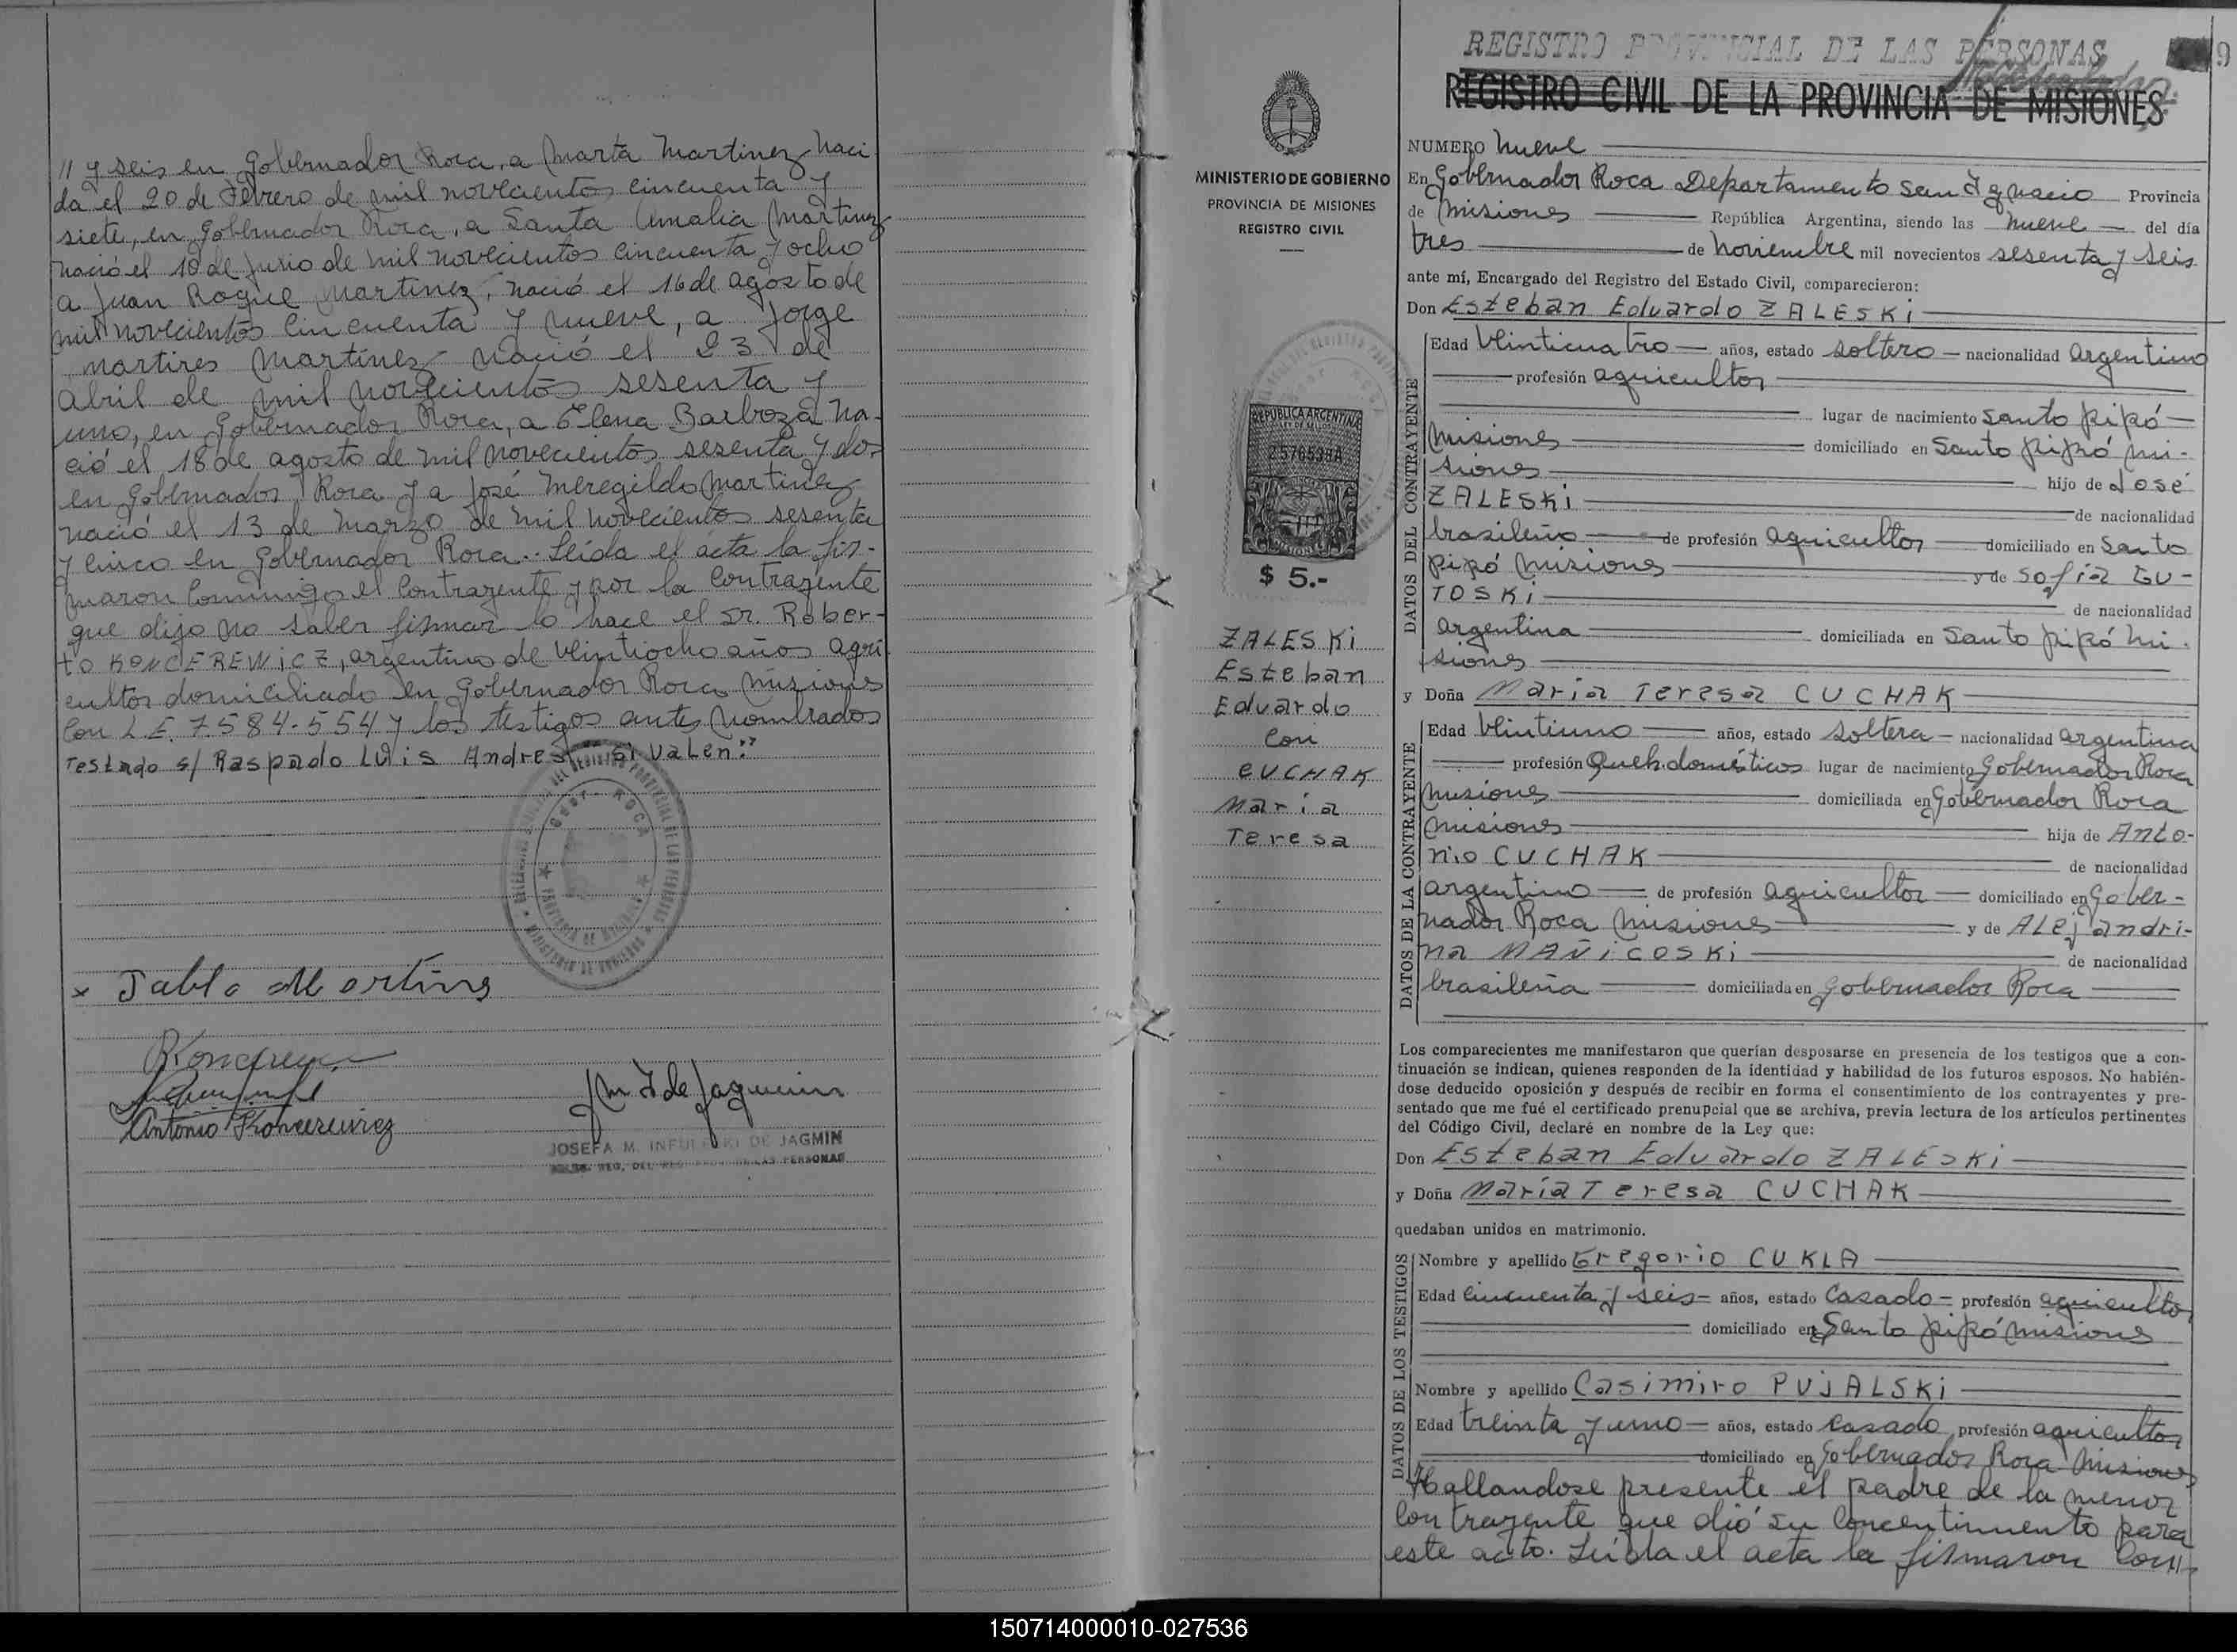 // y seis en Gobernador Roca, a Marta Martinez naci
da el 20 de Febrero de mil novecientos cincuenta y
siete, en Gobernador Roca, a Santa Amalia Martinez
nació el 10 de Junio de mil novecientos cincuenta y ocho
a Juan Roque Martinez, nació el 16 de agosto de
mil novecientos cincuenta y nueve, a Jorge
martires Martinez nació el 23 de
Abril de mil novecientos sesenta y
uno, en Gobernador Roca, a Elena Barboza na-
ció el 18 de agosto de mil novecientos sesenta y dos
en Gobernador Roca y a José Meregildo Martinez
nació el 13 de Marzo de mil novecientos sesenta
y cinco en Gobernador Roca.. Leída el acta la fir-
maron conmigo el contrayente y por la contrayente
que dijo no saber firmar lo hace el Sr. Rober-
to KONCEREWICZ, argentino de veintiocho años agri
cultor domiciliado en Gobernador Roca Misiones
con L.E. 7.584.554 y los testigos antes nombrados
Testado s/ Raspado Luis Andres "Si valen."
GDOR. ROCA
PROVINCIA DE MISIONES
x Pablo Martins
Antonio Koncerewicz
JOSEFA M. INFULESKI DE JAGMIN
MINISTERIO DE GOBIERNO
PROVINCIA DE MISIONES
REGISTRO CIVIL
REPUBLICA ARGENTINA
$ 5.-
ZALESKI
Esteban
Eduardo
con
CUCHAK
Maria
Teresa
REGISTRO PROVINCIAL DE LAS PERSONAS
9
REGISTRO CIVIL DE LA PROVINCIA DE MISIONES
NUMERO nueve
En Gobernador Roca Departamento San Ignacio Provincia
de Misiones República Argentina, siendo las nueve del día
tres de noviembre mil novecientos sesenta y seis
ante mí, Encargado del Registro del Estado Civil, comparecieron:
Don Esteban Eduardo ZALESKI
DATOS DEL CONTRAYENTE
Edad veinticuatro años, estado soltero nacionalidad argentino
profesión agricultor
lugar de nacimiento Santo Pipó
Misiones domiciliado en Santo Pipó Mi-
siones hijo de José
ZALESKI de nacionalidad
brasileño de profesión agricultor domiciliado en Santo
Pipó Misiones y de Sofía GU-
TOSKI de nacionalidad
argentina domiciliada en Santo Pipó Mi-
siones
y Doña Maria Teresa CUCHAK
DATOS DE LA CONTRAYENTE
Edad veintiuno años, estado soltera nacionalidad argentina
profesión Queh. domésticos lugar de nacimiento Gobernador Roca
Misiones domiciliada en Gobernador Roca
Misiones hija de Anto-
nio CUCHAK de nacionalidad
argentino de profesión agricultor domiciliado en Gober-
nador Roca Misiones y de Alejandri-
na MAÑICOSKI de nacionalidad
brasileña domiciliada en Gobernador Roca
Los comparecientes me manifestaron que querían desposarse en presencia de los testigos que a con-
tinuación se indican, quienes responden de la identidad y habilidad de los futuros esposos. No habién-
dose deducido oposición y después de recibir en forma el consentimiento de los contrayentes y pre-
sentado que me fué el certificado prenupcial que se archiva, previa lectura de los artículos pertinentes
del Código Civil, declaré en nombre de la Ley que:
Don Esteban Eduardo ZALESKI
y Doña María Teresa CUCHAK
quedaban unidos en matrimonio.
DATOS DE LOS TESTIGOS
Nombre y apellido Gregorio CUKLA
Edad cincuenta y seis años, estado casado profesión agricultor
domiciliado en Santo Pipó Misiones
Nombre y apellido Casimiro PUJALSKI
Edad treinta y uno años, estado casado profesión agricultor
domiciliado en Gobernador Roca Misiones
Hallandose presente el padre de la menor
contrayente que dió su concentimiento para
este acto. Leída el acta la firmaron con//
150714000010-027536